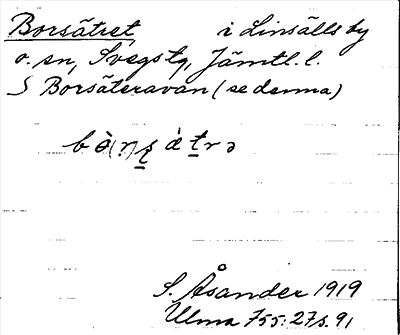 Borsätret i Linsälls by
o. sn, Svegs tg, Jämtl. l.
S Borsäteravan (se denna)
S. Åsander 1919
Ulma 755:27 s. 91